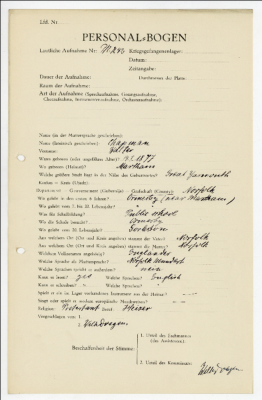 Lfd. Nr.
PERSONAL-BOGEN
Lautliche Aufnahme Nr.: Kriegsgefangenenlager:
Datum:
Zeitangabe:
Dauer der Aufnahme: Durchmesser der Platte:
Raum der Aufnahme:
Art der Aufnahme (Sprechaufnahme, Gesangsaufnahme,
Choraufnahme, Instrumentenaufnahme, Orchesteraufnahme):
Name (in der Muttersprache geschrieben):
Name (lateinisch geschrieben): Chapman
Vorname: Walter
Wann geboren (oder ungefähres Alter)? 1877
Wo geboren (Heimat)? Martham
Welche größere Stadt liegt in der Nähe des Geburtsortes? Great Yarmouth
Kanton – Kreis (Ujedz):
Departement – Gouvernement (Gubernija) – Grafschaft (County): Norfolk
Wo gelebt in den ersten 6 Jahren? Ormesby (near Martham)
Wo gelebt vom 7. bis 20. Lebensjahr?
Was für Schulbildung? Public school
Wo die Schule besucht? Ormesby
Wo gelebt vom 20. Lebensjahr?
Aus welchem Ort (Ort und Kreis angeben) stammt der Vater? Norfolk
Aus welchem Ort (Ort und Kreis angeben) stammt die Mutter? Norfolk
Welchem Volksstamm angehörig? Engländer
Welche Sprache als Muttersprache? Norfolk Mundart
Welche Sprachen spricht er außerdem? nein
Kann er lesen? yes Welche Sprachen? English
Kann er schreiben? Welche Sprachen?
Spielt er ein im Lager vorhandenes Instrument aus der Heimat?
Singt oder spielt er modern europäische Musikweisen?
Religion: Protestant Beruf: Heizer
Vorgeschlagen von: 1.
2.
Beschaffenheit der Stimme:
1. Urteil des Fachmannes
(des Assistenten):
2. Urteil des Kommissars: